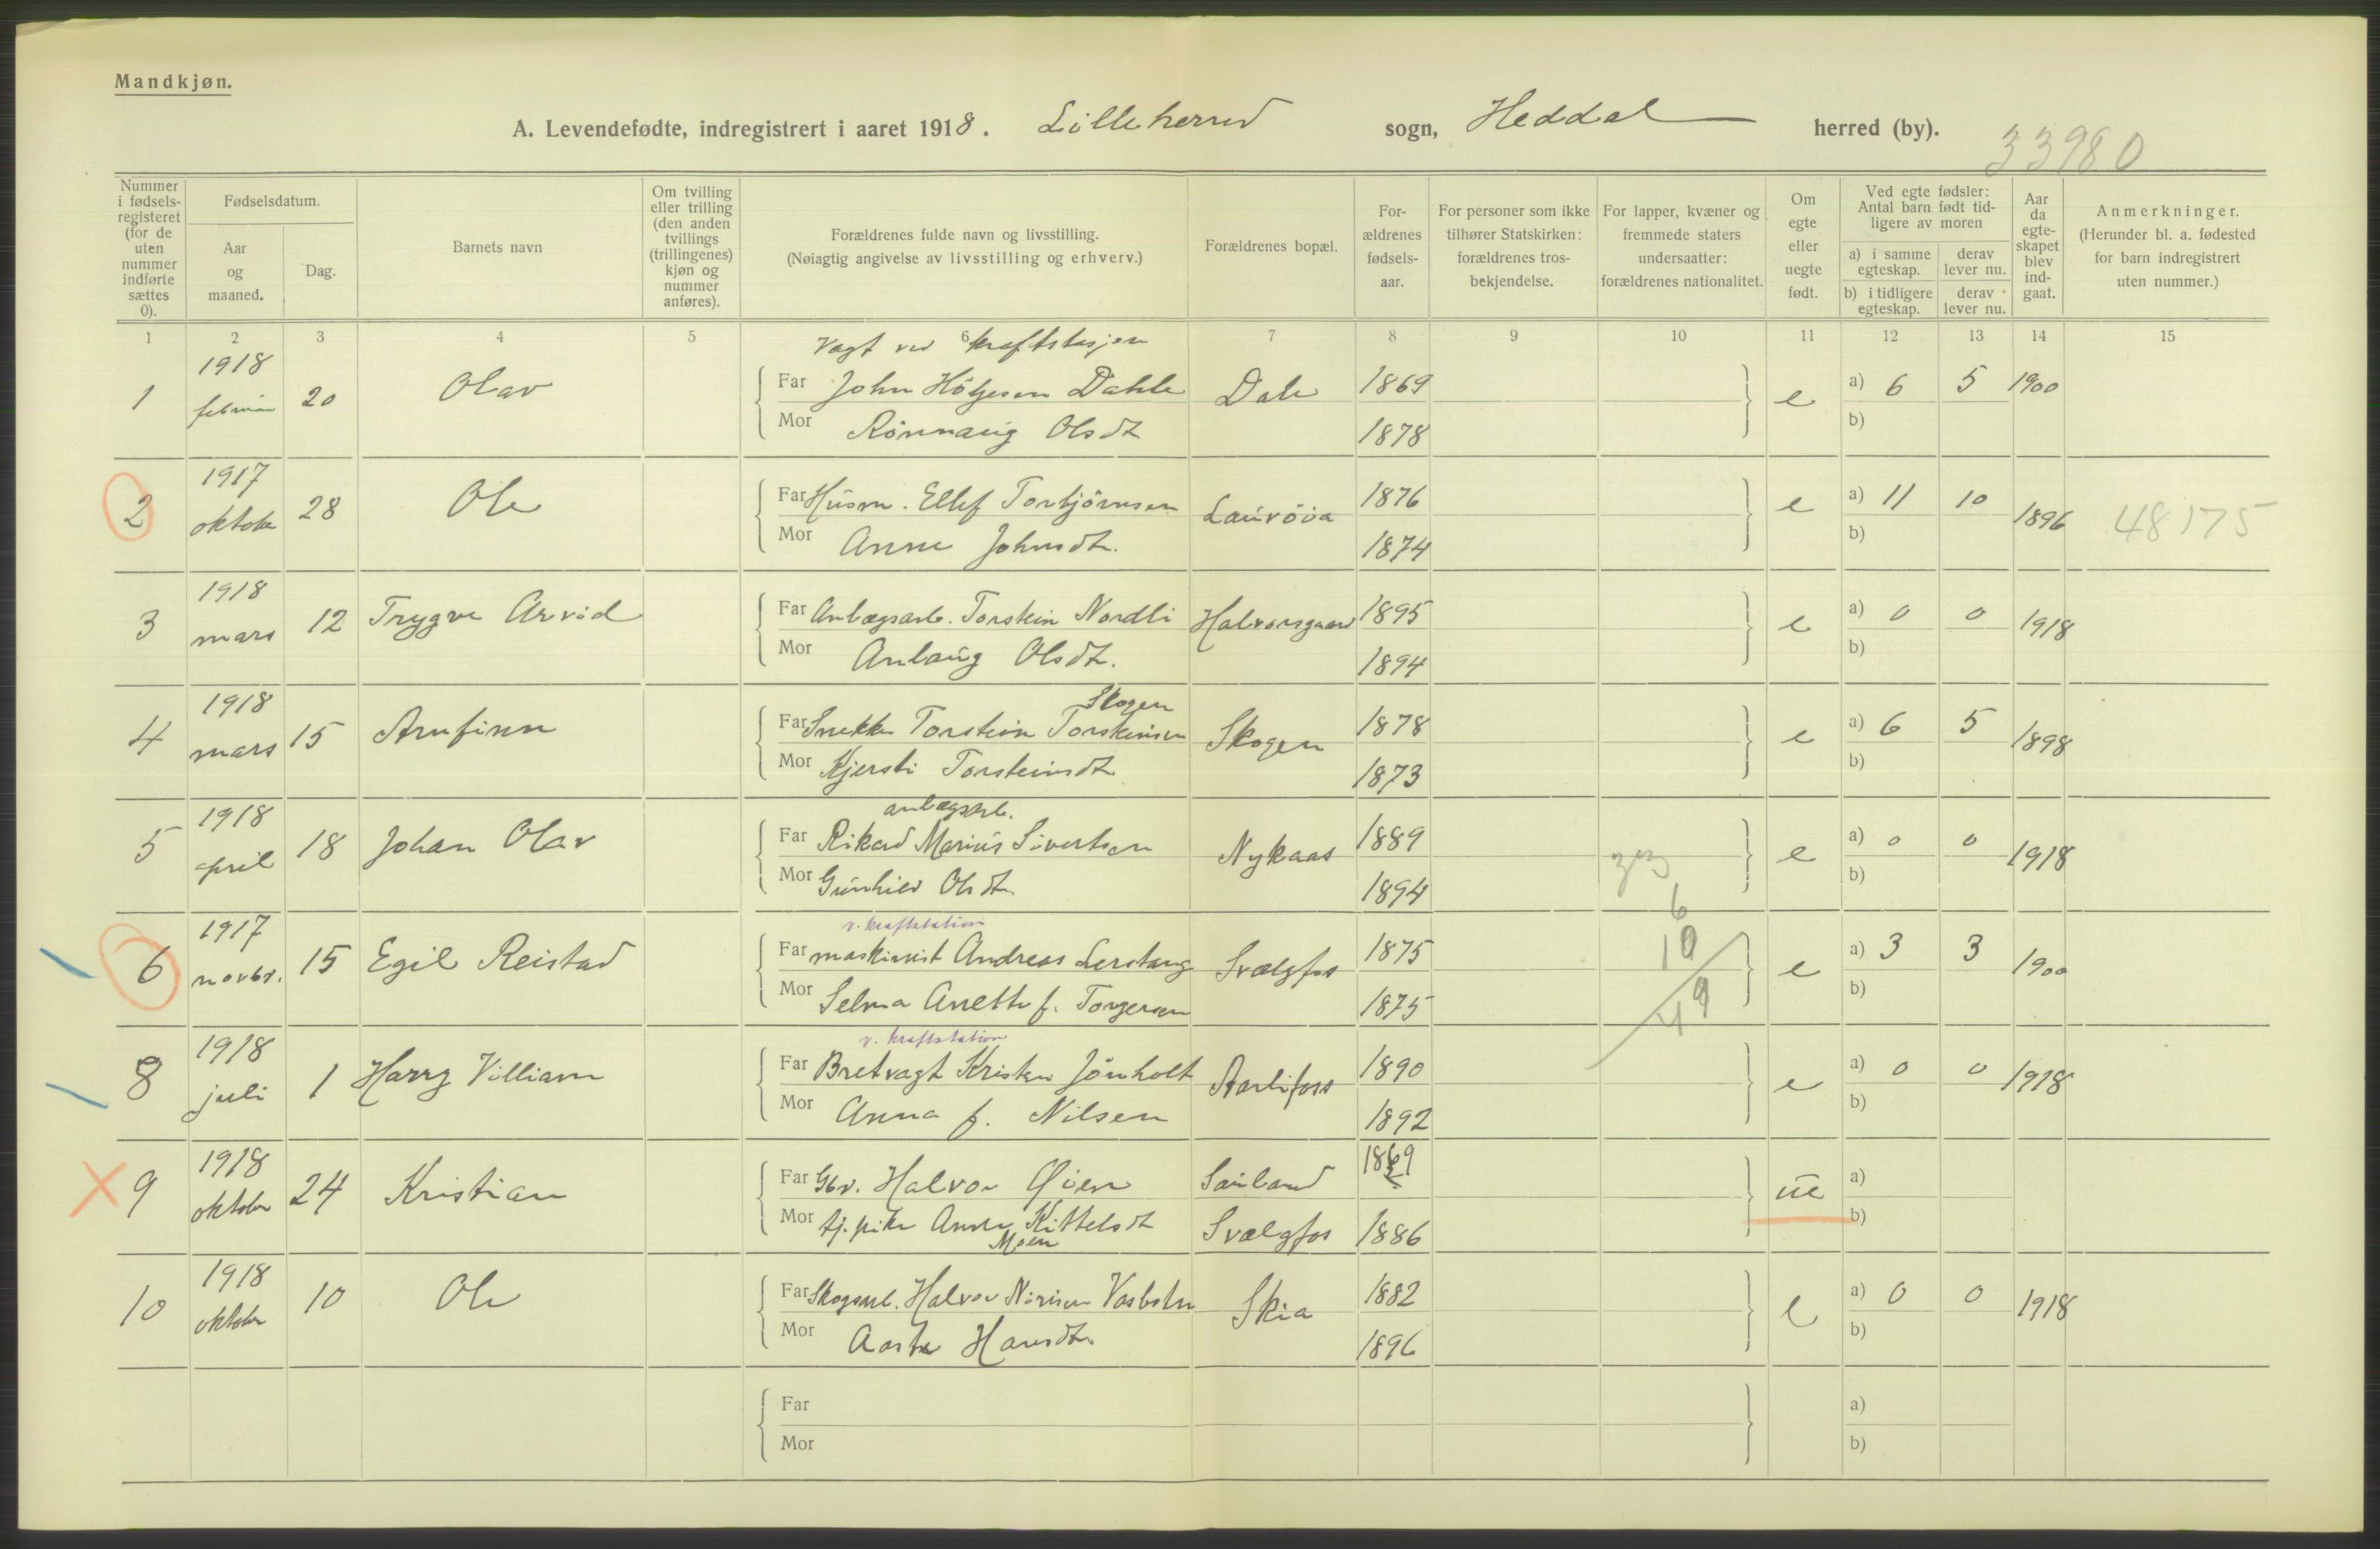 Mandkjøn.
A. Levendefødte, indregistrert i aaret 1918. Lilleherred sogn, Heddal herred (by).
33980
Nummer i fødselsregisteret (for de uten nummer indførte sættes 0).
Fødselsdatum.
Aar og maaned.
Dag.
Barnets navn
Om tvilling eller trilling (den anden tvillings (trillingenes) kjøn og nummer anføres).
Forældrenes fulde navn og livsstilling.
(Nøiagtig angivelse av livsstilling og erhverv.)
Forældrenes bopæl.
Forældrenes fødselsaar.
For personer som ikke tilhører Statskirken: forældrenes trosbekjendelse.
For lapper, kvæner og fremmede staters undersaatter: forældrenes nationalitet.
Om egte eller uegte født.
Ved egte fødsler: Antal barn født tidligere av moren
a) i samme egteskap. derav lever nu.
b) i tidligere egteskap. derav lever nu.
Aar da egteskapet blev indgaat.
Anmerkninger.
(Herunder bl. a. fødested for barn indregistrert uten nummer.)
1 2 3 4 5 6 7 8 9 10 11 12 13 14 15
Vagt ved kraftstasjon
1 1918 februar 20 Olav Far John Höljesen Dahle Dale 1869 e a) 6 5 1900
Mor Rönnaug Olsdt 1878 b)
2 1917 oktober 28 Ole Far Husm. Ellef Torbjörnsen 1876 e a) 11 10 1896 48175
Mor Anne Johnsdt. 1874 b)
3 1918 mars 12 Trygve Arvid Far Anlægsarb. Torstein Nordli Halvorsgaard 1895 e a) 0 0 1918
Mor Anlaug Olsdt. 1894 b)
Skogen
4 1918 mars 15 Arnfinn Far Snekker Torstein Torsteinsen Skogen 1878 e a) 6 5 1898
Mor Kjersti Torsteinsdt 1873 b)
anlægsarb.
5 1918 april 18 Johan Olav Far Rikard Marius Sivertsen Nykaas 1889 e a) 0 0 1918
Mor Gunhild Olsdt 1894 b)
6
v. kraftstation
6 1917 novbr. 15 Egil Reistad Far maskinist Andreas Lerstang Svælgfos 1875 10 e a) 3 3 1900
Mor Selma Anette f. Torgersen 1875 49 b)
v. kraftstation
8 1918 juli 1 Harry Villiam Far Bretvagt Kristen Jönholt 1890 e a) 0 0 1918
Mor Anna f. Nilsen 1892 b)
9 1918 oktober 24 Kristian Far Gbr. Halvor Øien Sauland 1869 ue a)
Mor tj.pike Anne Kittelsdt Svælgfos 1886 b)
Moen
10 1918 oktober 10 Ole Far Skogsarb. Halvor Nirisen Skia 1882 e a) 0 0 1918
Mor Aaste Hansdtr 1896 b)
Far a)
Mor b)